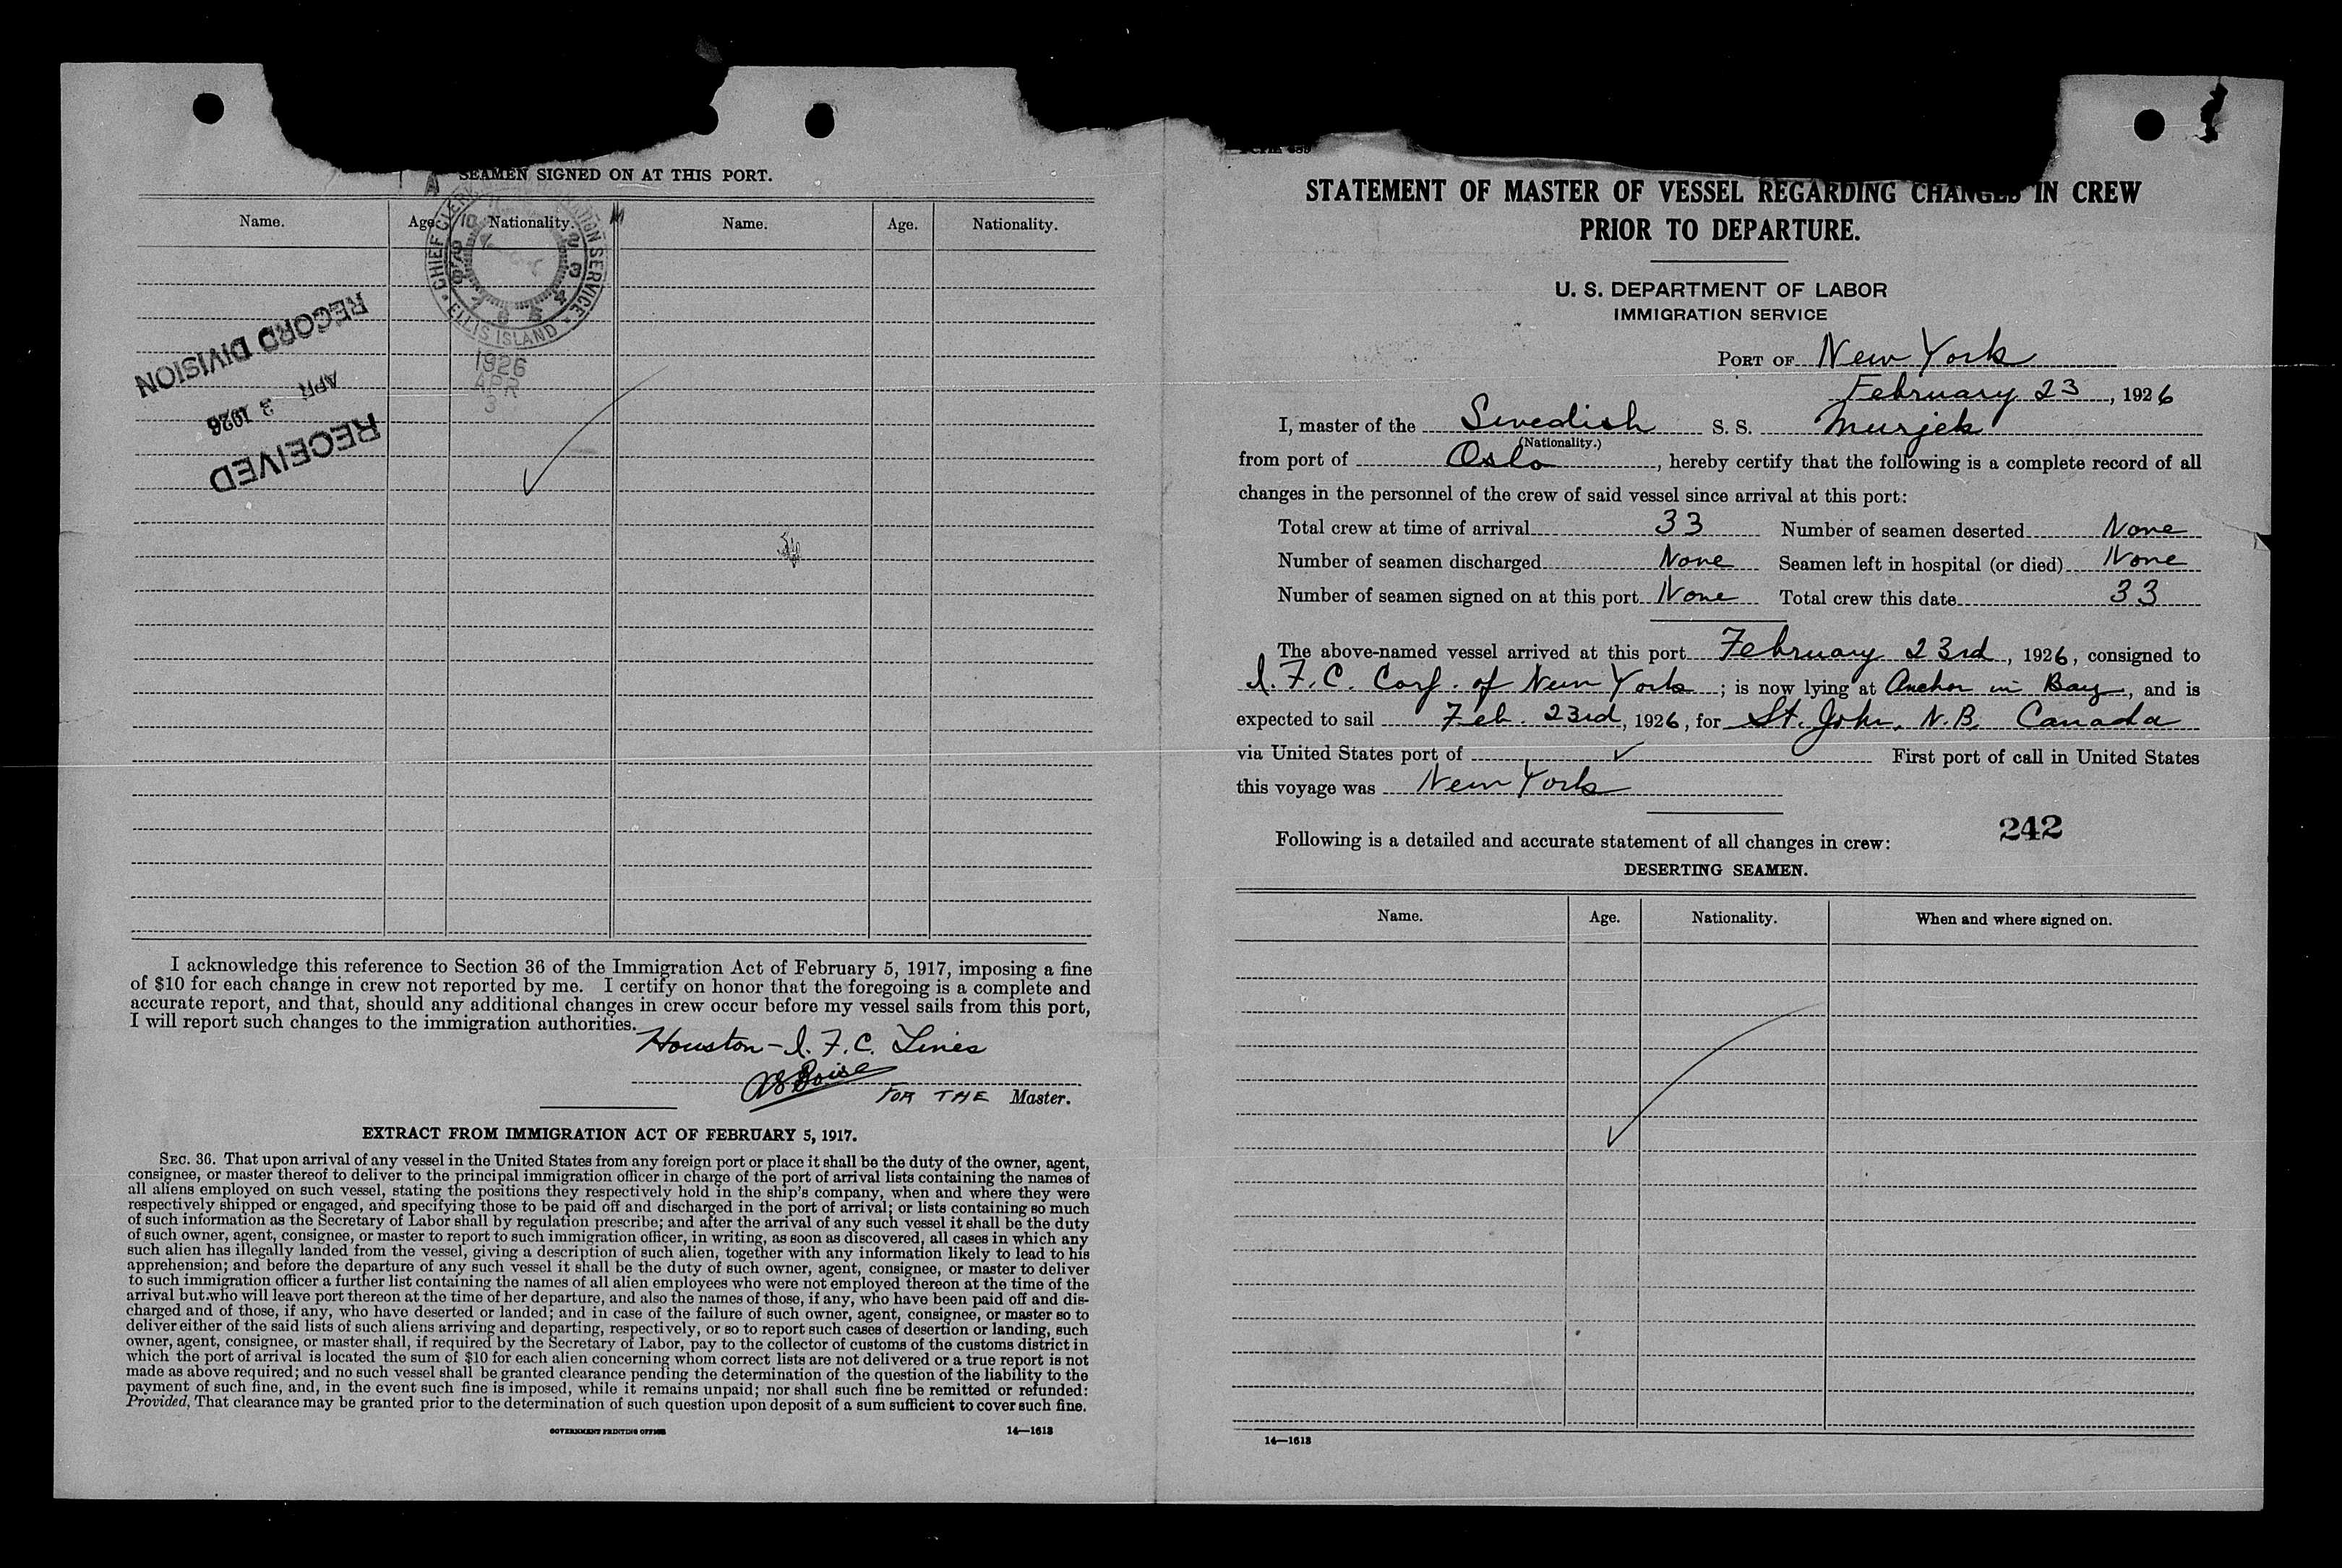 SEAMEN SIGNED ON AT THIS PORT.
Name. Age. Nationality. Name. Age. Nationality.
CHIEF CLERK
SERVICE
ELLIS ISLAND
1926
APR
3
RECEIVED
APR 3 1926
RECORD DIVISION
I acknowledge this reference to Section 36 of the Immigration Act of February 5, 1917, imposing a fine
of $10 for each change in crew not reported by me. I certify on honor that the foregoing is a complete and
accurate report, and that, should any additional changes in crew occur before my vessel sails from this port,
I will report such changes to the immigration authorities.
Houston - I. F. C. Lines
FOR THE Master.
EXTRACT FROM IMMIGRATION ACT OF FEBRUARY 5, 1917.
SEC. 36. That upon arrival of any vessel in the United States from any foreign port or place it shall be the duty of the owner, agent,
consignee, or master thereof to deliver to the principal immigration officer in charge of the port of arrival lists containing the names of
all aliens employed on such vessel, stating the positions they respectively hold in the ship's company, when and where they were
respectively shipped or engaged, and specifying those to be paid off and discharged in the port of arrival; or lists containing so much
of such information as the Secretary of Labor shall by regulation prescribe; and after the arrival of any such vessel it shall be the duty
of such owner, agent, consignee, or master to report to such immigration officer, in writing, as soon as discovered, all cases in which any
such alien has illegally landed from the vessel, giving a description of such alien, together with any information likely to lead to his
apprehension; and before the departure of any such vessel it shall be the duty of such owner, agent, consignee, or master to deliver
to such immigration officer a further list containing the names of all alien employees who were not employed thereon at the time of the
arrival but who will leave port thereon at the time of her departure, and also the names of those, if any, who have been paid off and dis-
charged and of those, if any, who have deserted or landed; and in case of the failure of such owner, agent, consignee, or master so to
deliver either of the said lists of such aliens arriving and departing, respectively, or so to report such cases of desertion or landing, such
owner, agent, consignee, or master shall, if required by the Secretary of Labor, pay to the collector of customs of the customs district in
which the port of arrival is located the sum of $10 for each alien concerning whom correct lists are not delivered or a true report is not
made as above required; and no such vessel shall be granted clearance pending the determination of the question of the liability to the
payment of such fine, and, in the event such fine is imposed, while it remains unpaid; nor shall such fine be remitted or refunded:
Provided, That clearance may be granted prior to the determination of such question upon deposit of a sum sufficient to cover such fine.
GOVERNMENT PRINTING OFFICE 14—1613
STATEMENT OF MASTER OF VESSEL REGARDING CHANGES IN CREW
PRIOR TO DEPARTURE.
U. S. DEPARTMENT OF LABOR
IMMIGRATION SERVICE
PORT OF New York
February 23, 1926
I, master of the Swedish S. S. Murjek
(Nationality.)
from port of Oslo, hereby certify that the following is a complete record of all
changes in the personnel of the crew of said vessel since arrival at this port:
Total crew at time of arrival 33 Number of seamen deserted None
Number of seamen discharged None Seamen left in hospital (or died) None
Number of seamen signed on at this port None Total crew this date 33
The above-named vessel arrived at this port February 23rd, 1926, consigned to
I. F. C. Corp. of New York; is now lying at Anchor in Bay, and is
expected to sail Feb. 23rd, 1926, for St. John, N.B. Canada
via United States port of First port of call in United States
this voyage was New York
242
Following is a detailed and accurate statement of all changes in crew:
DESERTING SEAMEN.
Name. Age. Nationality. When and where signed on.
14—1613